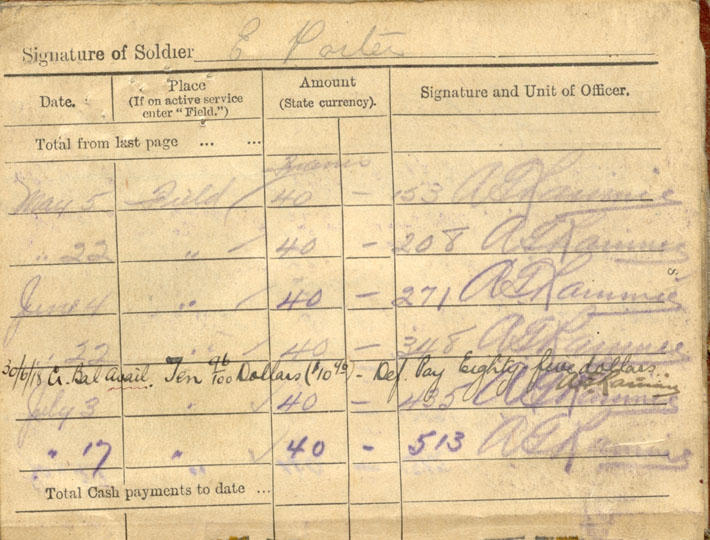 Signature of Soldier E Porter
Date. Place (If on active service enter "Field.") Amount (State currency). Signature and Unit of Officer.
Total from last page ... ...
Francs
May 5 Field 40 - 153
" 22 " 40 - 208
June 4 " 40 - 271
" 22 " 40 - 348
30/6/18 Cr. Bal Avail. Ten 96/100 Dollars ($10 96) - Def. Pay Eighty five dollars.
July 3 " 40 - 435
" 17 " 40 - 513
Total Cash payments to date ...